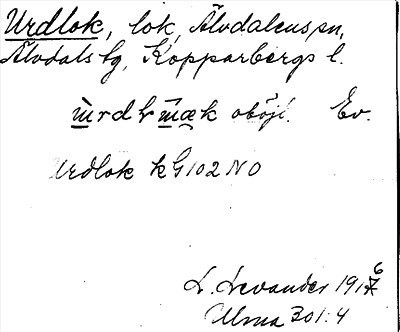 Urdlok, lok, Älvdalens sn,
Älvdals tg, Kopparbergs l.
oböjl. Ev.
Urdlok kG 102 NO
L. Levander 1916
Ulma 301:4